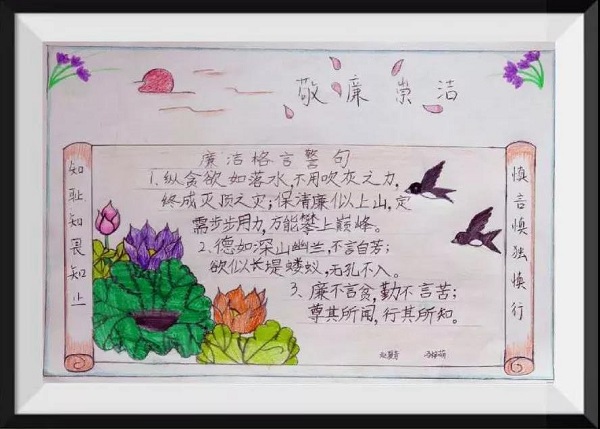 敬廉崇洁
知耻知畏知止
廉洁格言警句
1、纵贪欲如落水,不用吹灰之力,
终成灭顶之灾;保清廉似上山,定
需步步用力,方能攀上巅峰。
2、德如深山幽兰,不言自芳;
欲似长堤蝼蚁,无孔不入。
3、廉不言贫,勤不言苦;
尊其所闻,行其所知。
慎言慎独慎行